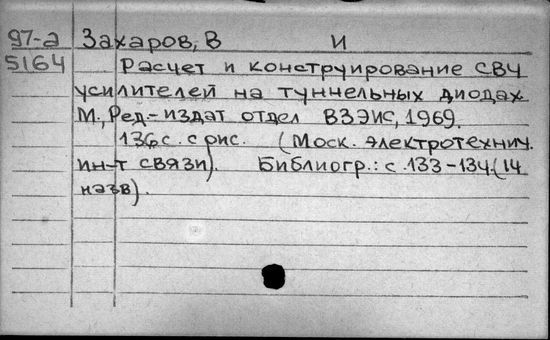 97-2 Захаров, В И
5164 Расчет и конструирование СВЧ
усилителей на туннельных диодах
М., Ред-издат отдел ВЗЭИС, 1969.
136 с. с рис. (Моск. электротехнич.
ин-т связи). Библиогр.: с. 133-134. (14
назв).